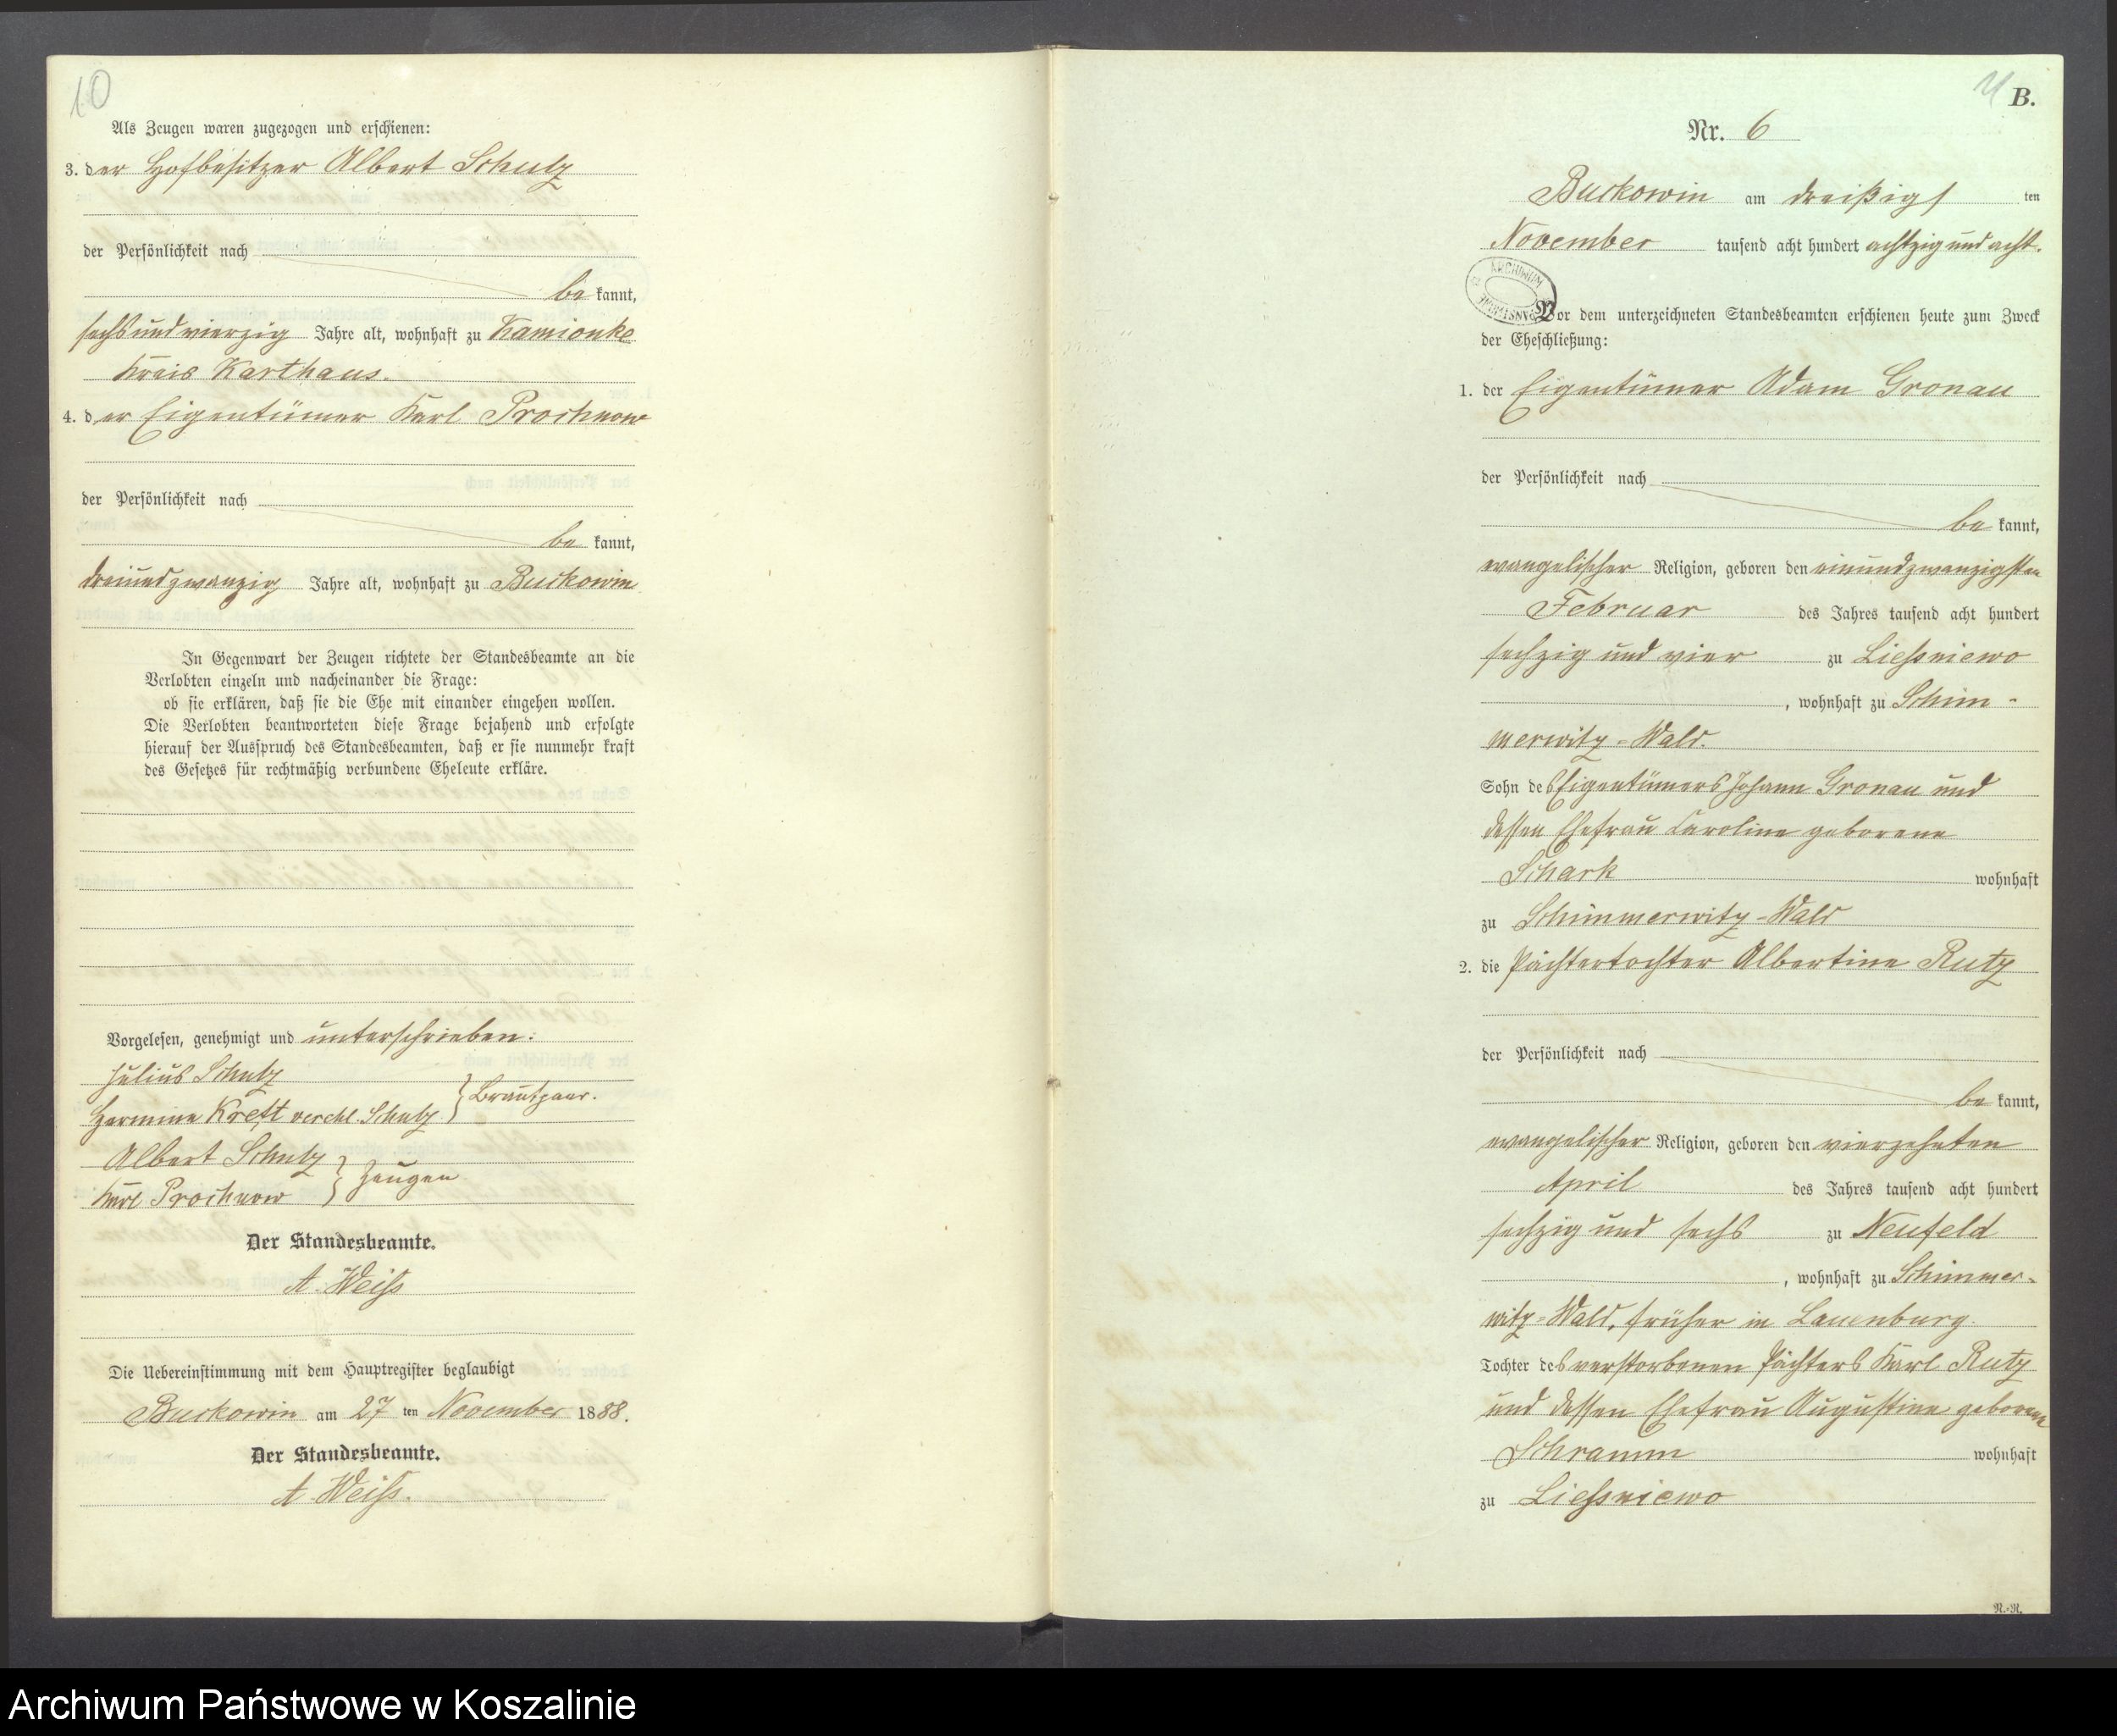 10
Als Zeugen waren zugezogen und erschienen:
3. der Hofbesitzer Albert Schulz
der Persönlichkeit nach
bekannt,
sechsundvierzig Jahre alt, wohnhaft zu Kamionke
Kreis Karthaus.
4. der Eigentümer Karl Prochnow
der Persönlichkeit nach
bekannt,
dreiundzwanzig Jahre alt, wohnhaft zu Buckowin
In Gegenwart der Zeugen richtete der Standesbeamte an die
Verlobten einzeln und nacheinander die Frage:
ob sie erklären, daß sie die Ehe mit einander eingehen wollen.
Die Verlobten beantworteten diese Frage bejahend und erfolgte
hierauf der Ausspruch des Standesbeamten, daß er sie nunmehr kraft
des Gesetzes für rechtmäßig verbundene Eheleute erkläre.
Vorgelesen, genehmigt und unterschrieben:
Julius Schulz
Hermine Kreft verehl. Schulz } Brautpaar.
Albert Schulz
Karl Prochnow } Zeugen
Der Standesbeamte.
A. Weiß
Die Uebereinstimmung mit dem Hauptregister beglaubigt
Buckowin am 27 ten November 1888.
Der Standesbeamte.
A. Weiß.
11
B.
Nr. 6
Buckowin am dreißigsten
November tausend acht hundert achtzig und acht.
ARCHIWUM PAŃSTWOWE
Vor dem unterzeichneten Standesbeamten erschienen heute zum Zweck
der Eheschließung:
1. der Eigentümer Adam Gronau
der Persönlichkeit nach
bekannt,
evangelischer Religion, geboren den einundzwanzigsten
Februar des Jahres tausend acht hundert
sechzig und vier zu Ließniewo
, wohnhaft zu Schim-
merwitz-Wald.
Sohn des Eigentümers Johann Gronau und
dessen Ehefrau Caroline geborene
Schark wohnhaft
zu Schimmerwitz-Wald
2. die Pächtertochter Albertine Rutz
der Persönlichkeit nach
bekannt,
evangelischer Religion, geboren den vierzehnten
April des Jahres tausend acht hundert
sechzig und sechs zu Neufeld
, wohnhaft zu Schimmer-
witz-Wald, früher in Lauenburg.
Tochter des verstorbenen Pächters Karl Rutz
und dessen Ehefrau Augustine geborene
Schramm wohnhaft
zu Ließniewo
R.-R.
Archiwum Państwowe w Koszalinie